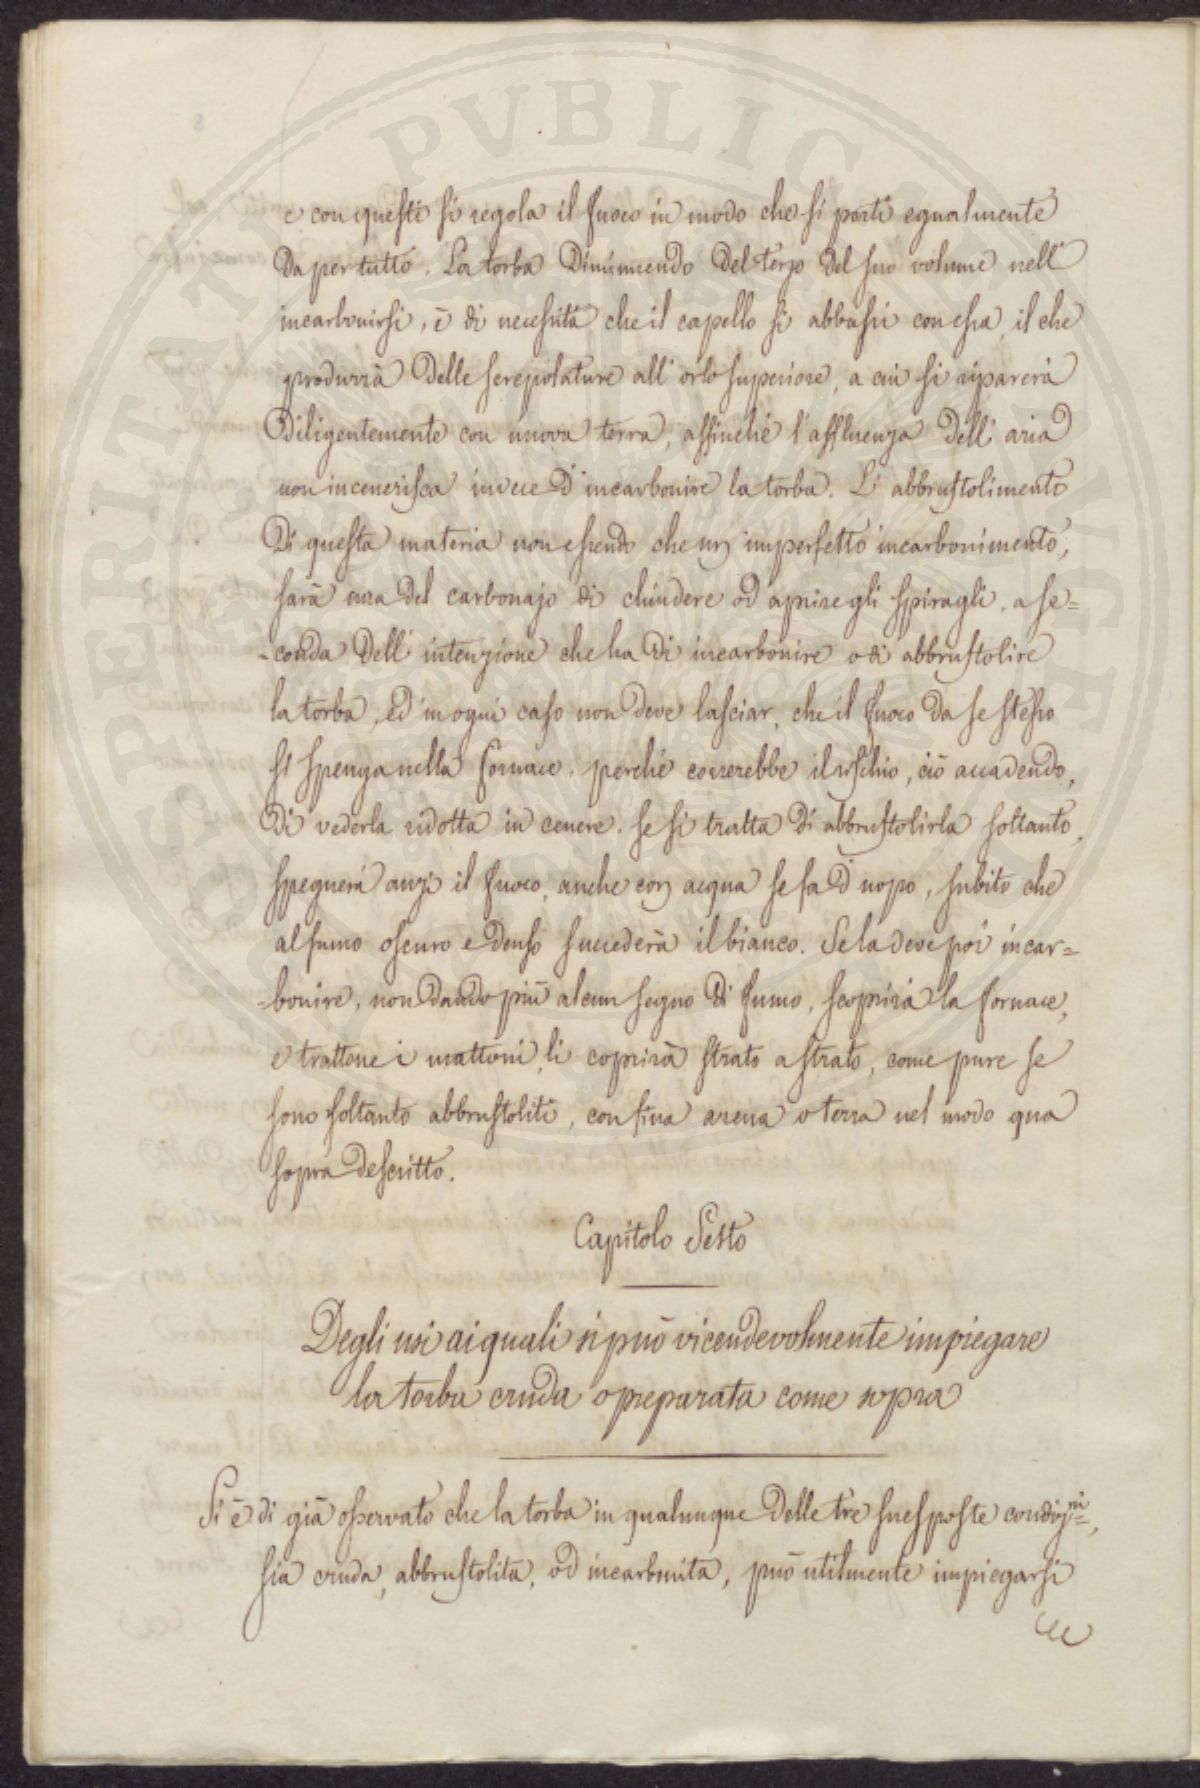 e con questi si regola il fuoco in modo che si porti egualmente
da per tutto. La torba diminuendo del terzo del suo volume nell'
incarbonirsi, è di necessità che il capello si abbassi con essa, il che
produrrà delle screpolature all'orlo superiore, a cui si riparerà
diligentemente con nuova terra, affinché l'affluenza dell'aria
non incenerisca invece d'incarbonire la torba. L'abbrustolimento
di questa materia non essendo che un imperfetto incarbonimento,
sarà cura del carbonajo di chiudere od aprire gli spiragli, a se=
=conda dell'intenzione che ha di incarbonire o di abbrustolire
la torba, ed in ogni caso non deve lasciar, che il fuoco da se stesso
si spenga nella fornace, perché correrebbe il rischio, ciò accadendo,
di vederla ridotta in cenere. Se si tratta di abbrustolirla soltanto,
spegnerà anzi il fuoco, anche con acqua se fa d'uopo, subito che
al fumo oscuro e denso succederà il bianco. Se la deve poi incar=
=bonire, non dando più alcun segno di fumo, scoprirà la fornace,
e trattone i mattoni, li coprirà strato a strato, come pure se
sono soltanto abbrustoliti, con fina arena o terra nel modo qua
sopra descritto.
Capitolo Sesto
Degli usi ai quali si può vicendevolmente impiegare
la torba cruda o preparata come sopra
Si è di già osservato che la torba in qualunque delle tre suesposte condizni,
sia cruda, abbrustolita, od incarbonita, può utilmente impiegarsi
PROSPERITATI PVBLICAE AVGENDAE